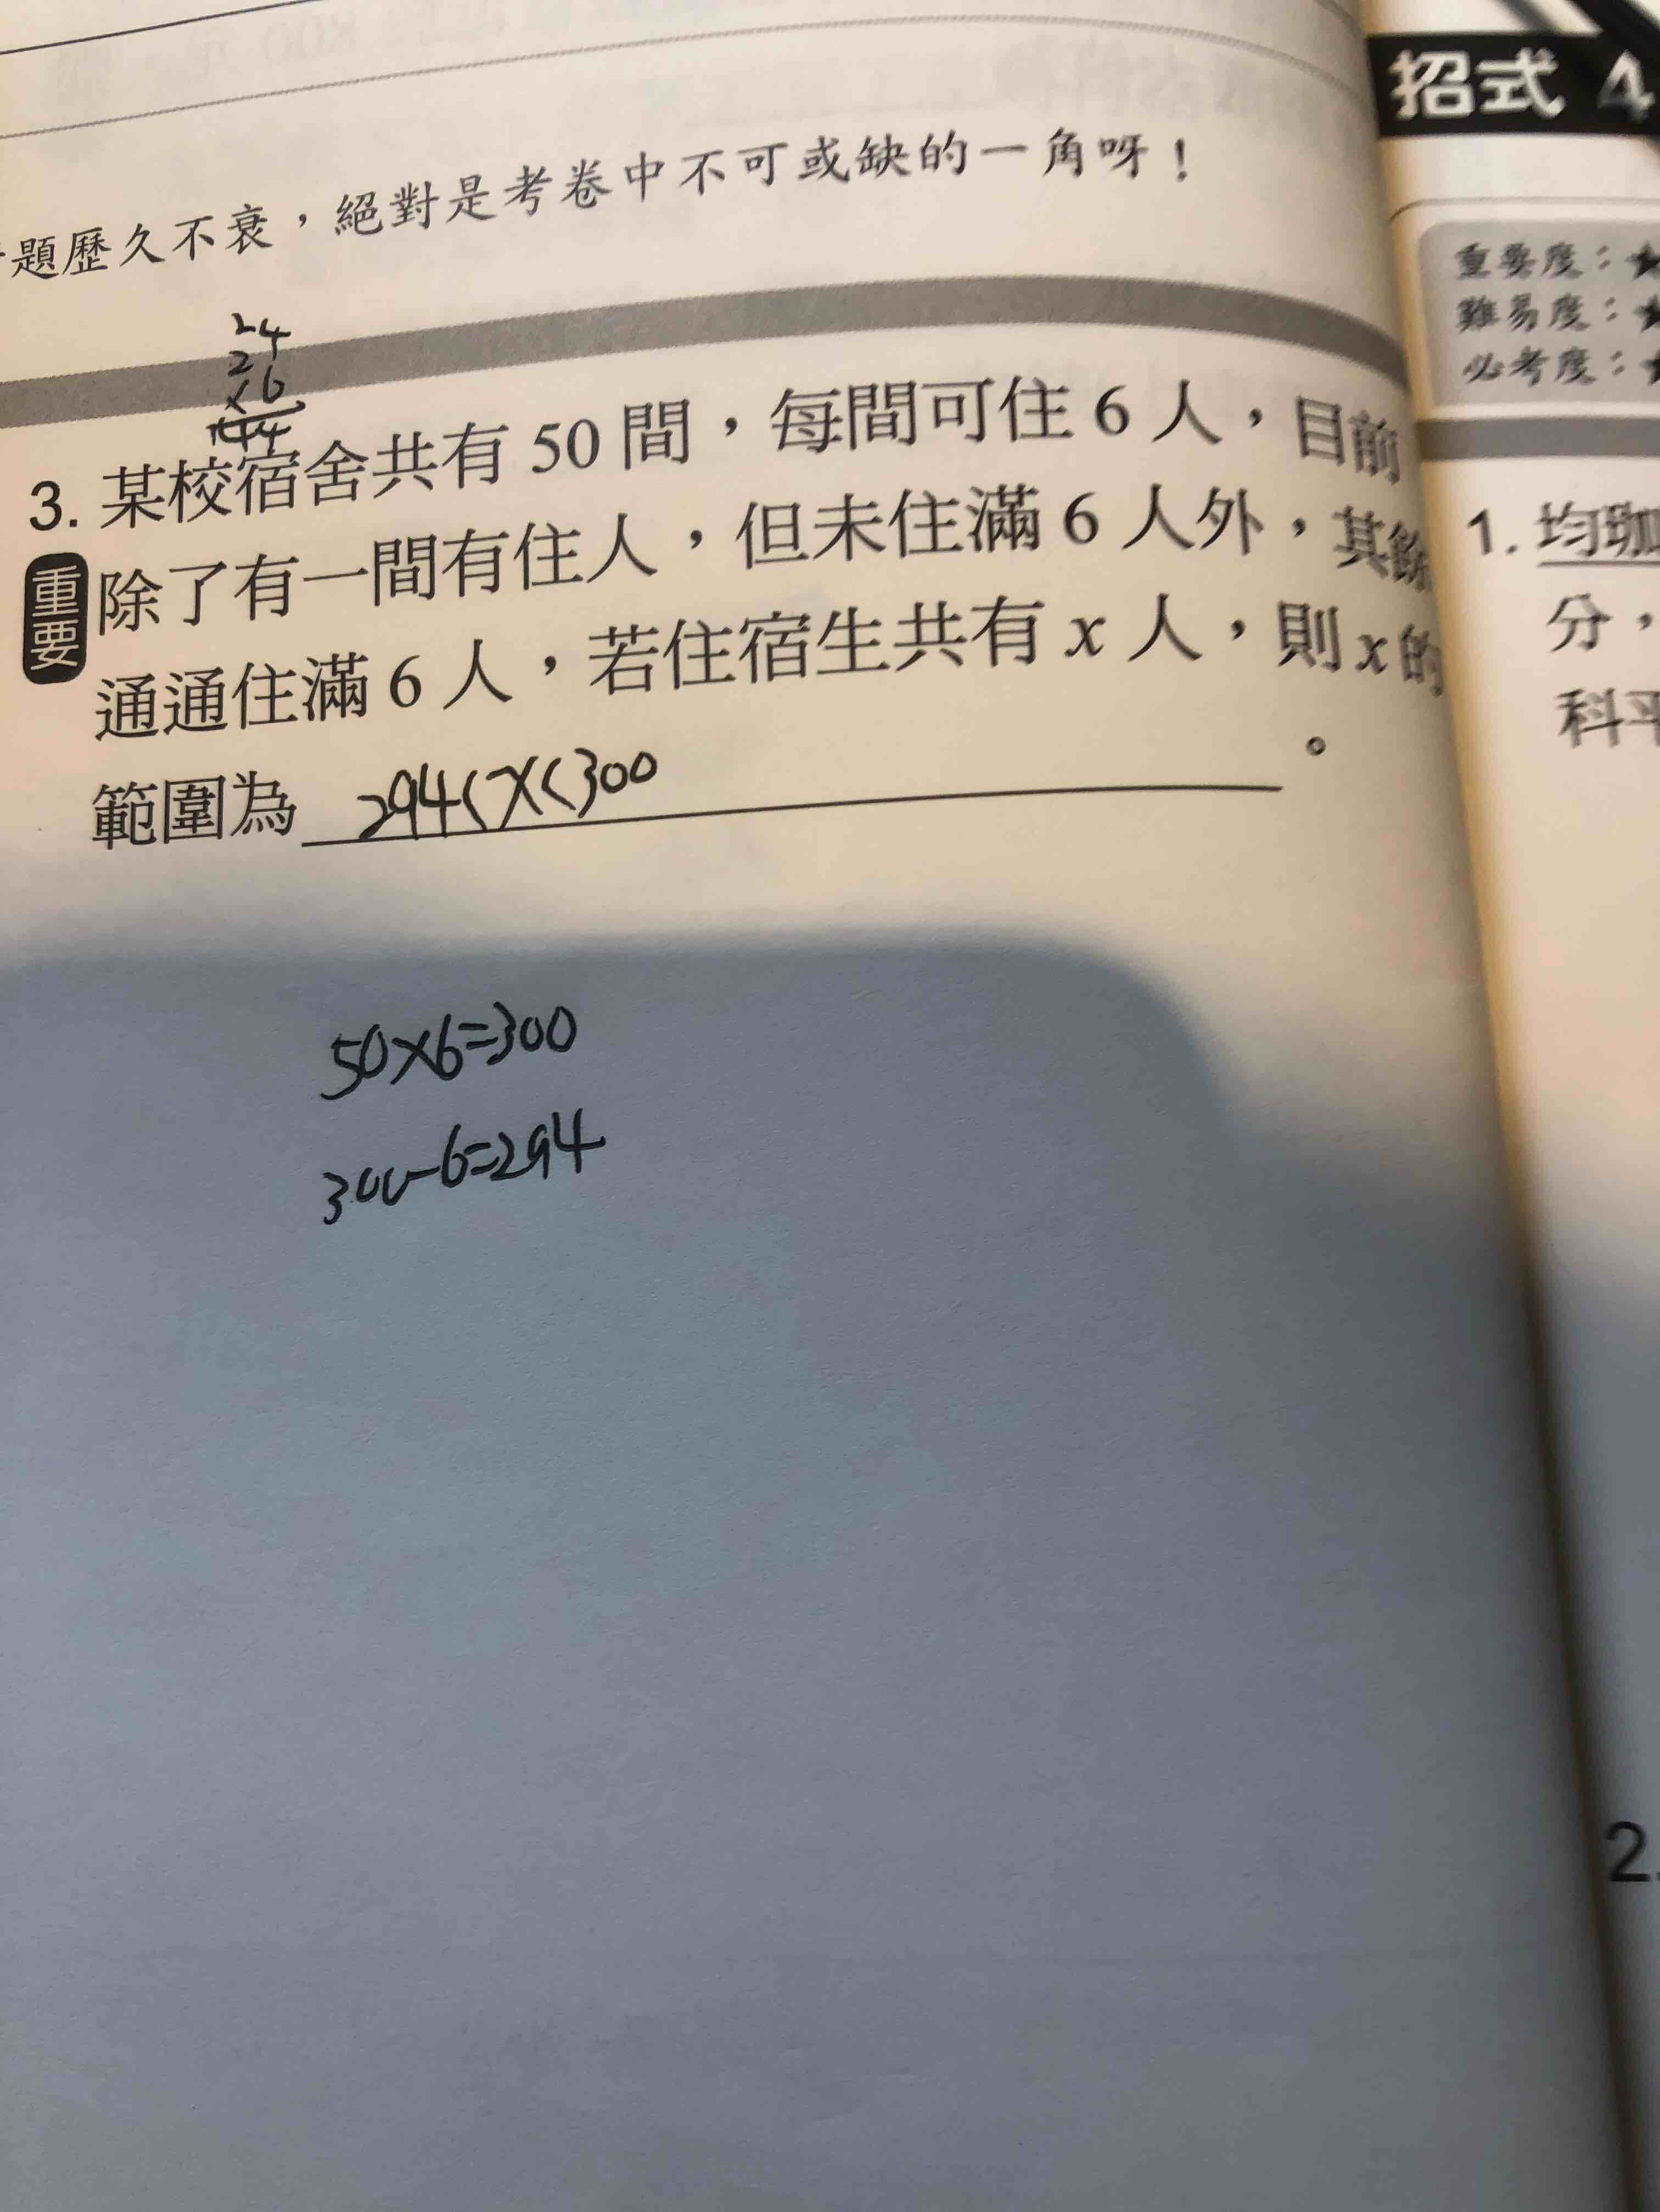 招式 4
題歷久不衰，絕對是考卷中不可或缺的一角呀！
重要度：★
難易度：★
必考度：★
24
×6
144
3. 某校宿舍共有 50 間，每間可住 6 人，目前
重要 除了有一間有住人，但未住滿 6 人外，其餘
通通住滿 6 人，若住宿生共有 x 人，則 x 的
範圍為 294<x<300 。
50×6=300
300-6=294
1. 均
分，
科平
2.